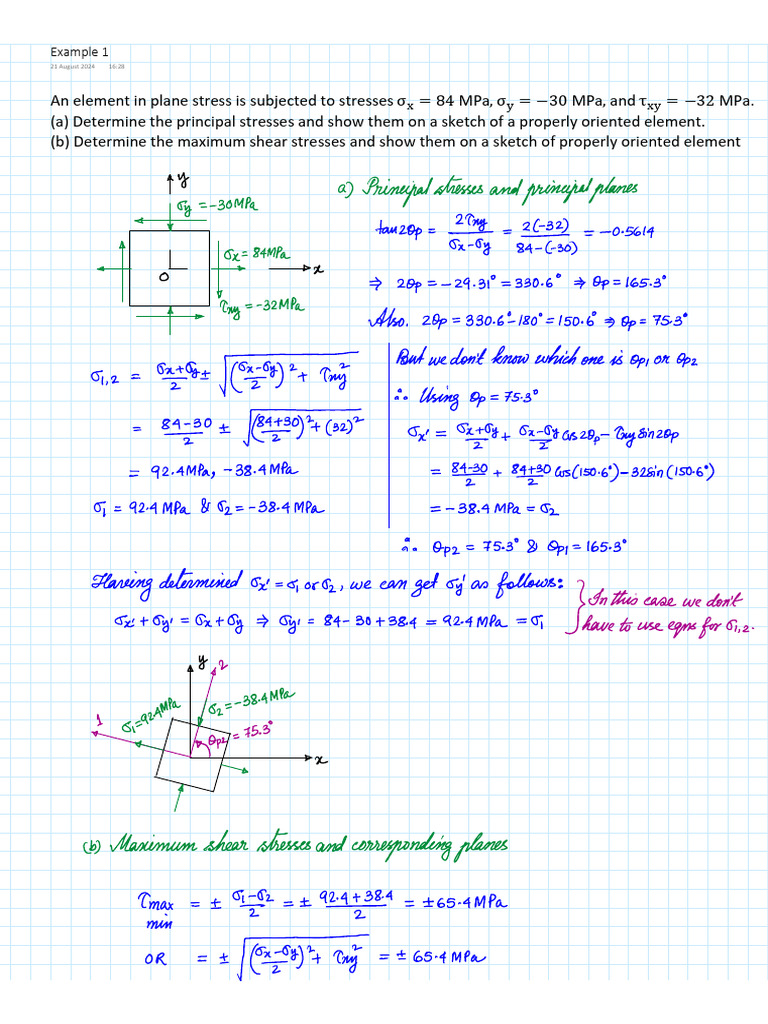 Example 1
21 August 2024 16:28
An element in plane stress is subjected to stresses σx = 84 MPa, σy = −30 MPa, and τxy = −32 MPa.
(a) Determine the principal stresses and show them on a sketch of a properly oriented element.
(b) Determine the maximum shear stresses and show them on a sketch of properly oriented element
y
σy = -30MPa
σx = 84MPa
x
O
τxy = -32MPa
a) Principal stresses and principal planes
tan2θp = 2τxy/(σx-σy) = 2(-32)/(84-(-30)) = -0.5614
⇒ 2θp = -29.31° = 330.6° ⇒ θp = 165.3°
Also, 2θp = 330.6°-180° = 150.6° ⇒ θp = 75.3°
σ1,2 = (σx+σy)/2 ± √(((σx-σy)/2)² + τxy²)
= (84-30)/2 ± √(((84+30)/2)² + (32)²)
= 92.4MPa, -38.4MPa
σ1 = 92.4 MPa & σ2 = -38.4MPa
But we don't know which one is θp1 or θp2
∴ Using θp = 75.3°
σx' = (σx+σy)/2 + (σx-σy)/2 cos2θp - τxy sin2θp
= (84-30)/2 + (84+30)/2 cos(150.6°) - 32sin(150.6°)
= -38.4 MPa = σ2
∴ θp2 = 75.3° & θp1 = 165.3°
Having determined σx' = σ1 or σ2, we can get σy' as follows:
σx' + σy' = σx + σy ⇒ σy' = 84 - 30 + 38.4 = 92.4 MPa = σ1
In this case we don't
have to use eqns for σ1,2.
y
2
σ2 = -38.4 MPa
σ1 = 92.4MPa
1
θp2 = 75.3°
x
(b) Maximum shear stresses and corresponding planes
τmax = ± (σ1-σ2)/2 = ± (92.4+38.4)/2 = ±65.4MPa
min
OR = ± √(((σx-σy)/2)² + τxy²) = ± 65.4 MPa